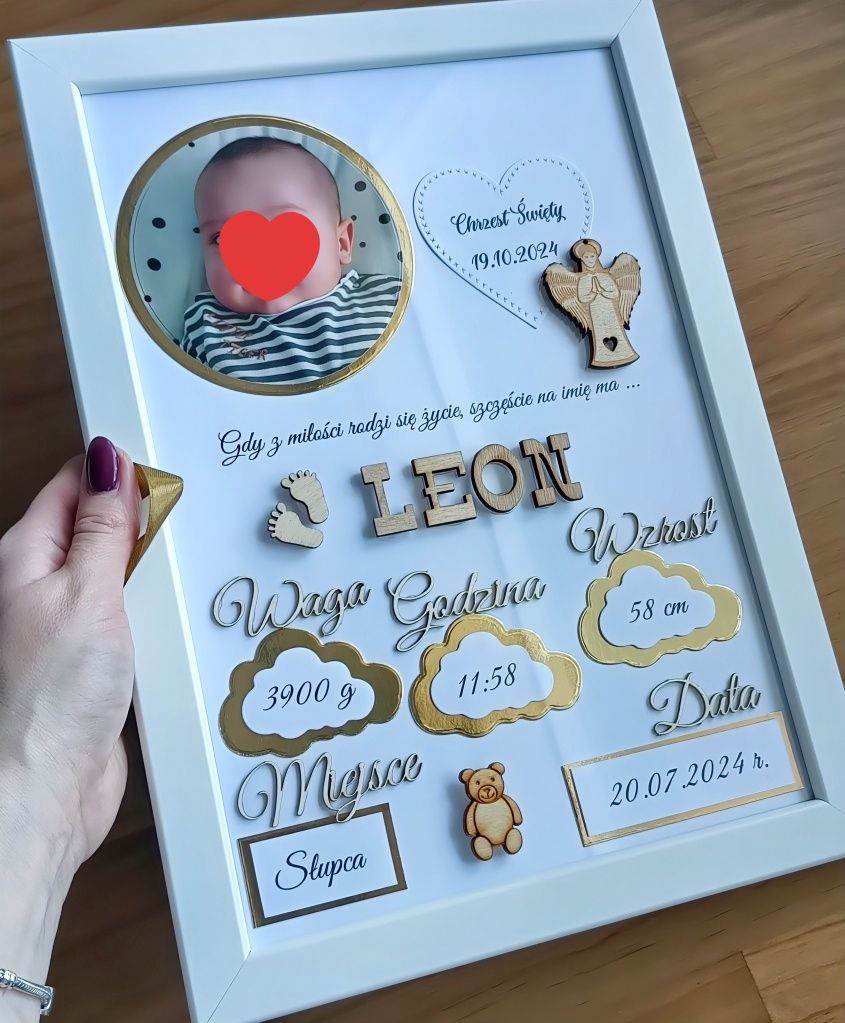 Chrzest Święty
19.10.2024
Gdy z miłości rodzi się życie, szczęście na imię ma ...
LEON
Waga
Godzina
Wzrost
3900 g
11:58
58 cm
Miejsce
Data
Słupca
20.07.2024 r.